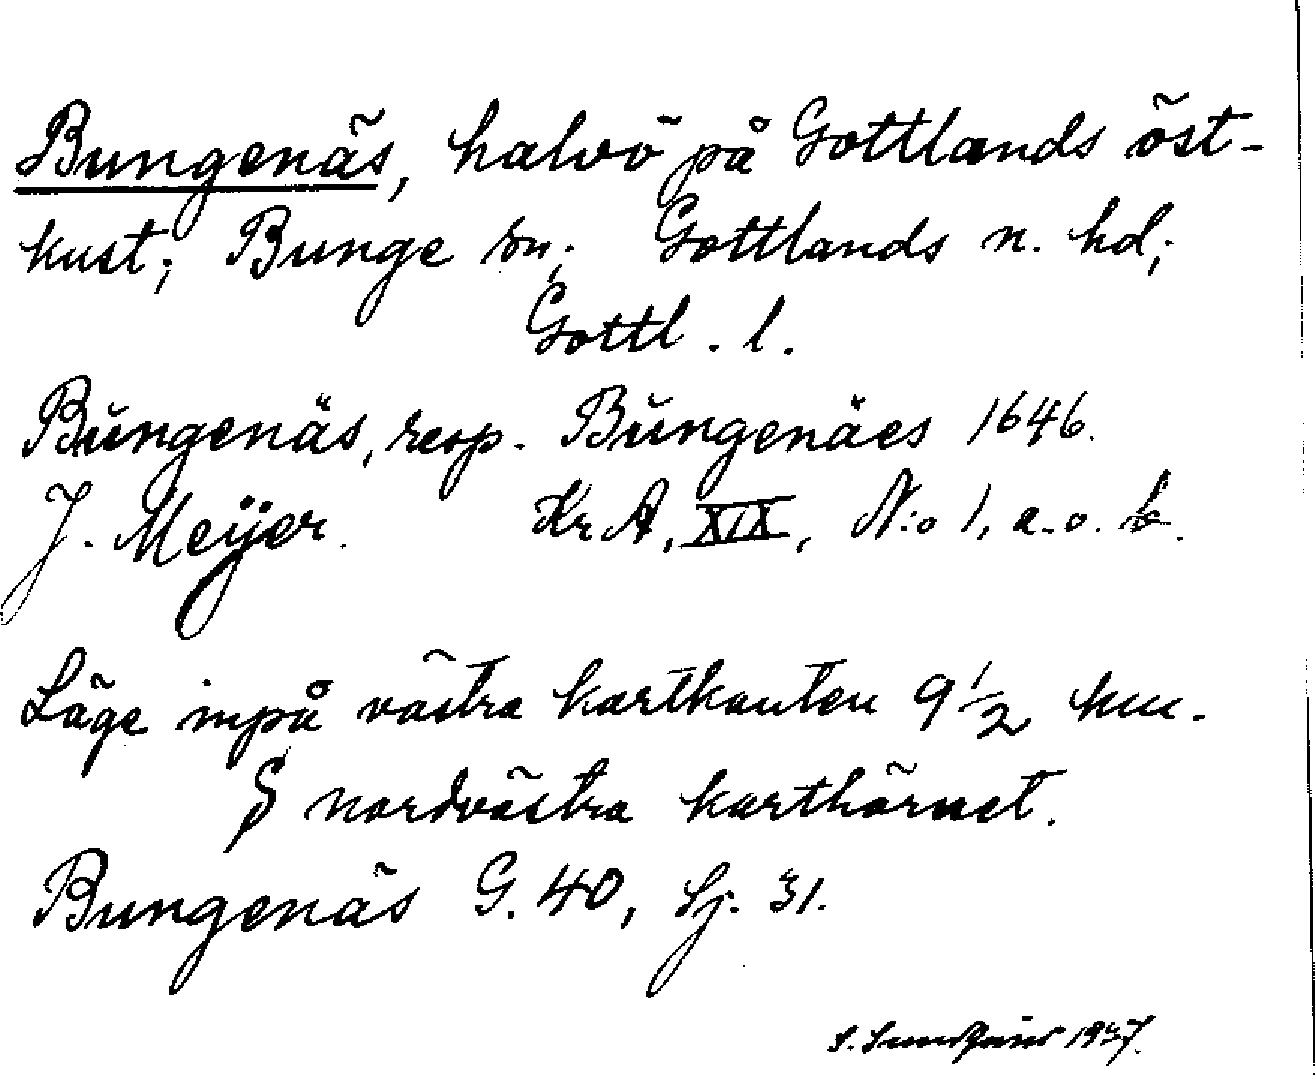 Bungenäs, halvö på Gottlands öst-
kust; Bunge sn; Gottlands n. hd;
Gottl. l.
Bŭngenäs, resp. Bŭngenäes 1646.
J. Meÿer. Kr A, XIX, N:o 1, a.o. b.
Läge inpå västra kartkanten 9 1/2 km.
S nordvästra karthörnet.
Bungenäs G. 40, Sj. 31.
S. 1937.